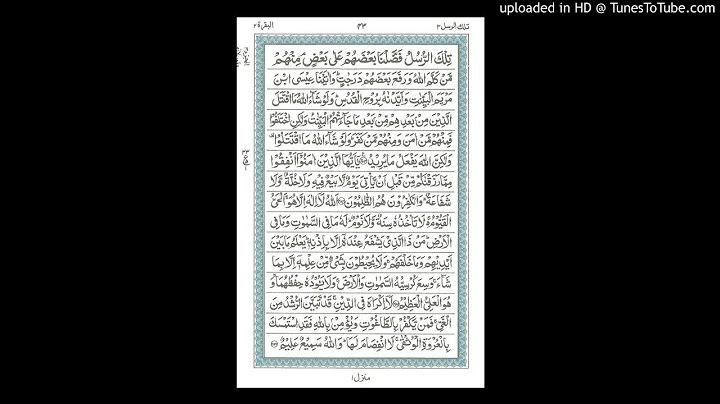 uploaded in HD @ TunesToTube.com
تلك الرسل ٣
٤٣
البقرة ٢
تِلْكَ الرُّسُلُ فَضَّلْنَا بَعْضَهُمْ عَلٰى بَعْضٍ مِنْهُمْ
مَّنْ كَلَّمَ اللّٰهُ وَرَفَعَ بَعْضَهُمْ دَرَجٰتٍ وَاٰتَيْنَا عِيْسَى ابْنَ
مَرْيَمَ الْبَيِّنٰتِ وَاَيَّدْنٰهُ بِرُوْحِ الْقُدُسِ وَلَوْ شَآءَ اللّٰهُ مَا اقْتَتَلَ
الَّذِيْنَ مِنْ بَعْدِهِمْ مِّنْ بَعْدِ مَا جَآءَتْهُمُ الْبَيِّنٰتُ وَلٰكِنِ اخْتَلَفُوْا
فَمِنْهُمْ مَّنْ اٰمَنَ وَمِنْهُمْ مَّنْ كَفَرَ وَلَوْ شَآءَ اللّٰهُ مَا اقْتَتَلُوْا
وَلٰكِنَّ اللّٰهَ يَفْعَلُ مَا يُرِيْدُ يٰٓاَيُّهَا الَّذِيْنَ اٰمَنُوْٓا اَنْفِقُوْا
مِمَّا رَزَقْنٰكُمْ مِّنْ قَبْلِ اَنْ يَّاْتِيَ يَوْمٌ لَّا بَيْعٌ فِيْهِ وَلَا خُلَّةٌ وَّلَا
شَفَاعَةٌ وَالْكٰفِرُوْنَ هُمُ الظّٰلِمُوْنَ اَللّٰهُ لَآ اِلٰهَ اِلَّا هُوَ اَلْحَيُّ
الْقَيُّوْمُ لَا تَاْخُذُهٗ سِنَةٌ وَّلَا نَوْمٌ لَهٗ مَا فِي السَّمٰوٰتِ وَمَا فِي
الْاَرْضِ مَنْ ذَا الَّذِيْ يَشْفَعُ عِنْدَهٗٓ اِلَّا بِاِذْنِهٖ يَعْلَمُ مَا بَيْنَ
اَيْدِيْهِمْ وَمَا خَلْفَهُمْ وَلَا يُحِيْطُوْنَ بِشَيْءٍ مِّنْ عِلْمِهٖٓ اِلَّا بِمَا
شَآءَ وَسِعَ كُرْسِيُّهُ السَّمٰوٰتِ وَالْاَرْضَ وَلَا يَئُوْدُهٗ حِفْظُهُمَا وَ
هُوَ الْعَلِيُّ الْعَظِيْمُ لَآ اِكْرَاهَ فِي الدِّيْنِ قَدْ تَّبَيَّنَ الرُّشْدُ مِنَ
الْغَيِّ فَمَنْ يَّكْفُرْ بِالطَّاغُوْتِ وَيُؤْمِنْ بِاللّٰهِ فَقَدِ اسْتَمْسَكَ
بِالْعُرْوَةِ الْوُثْقٰى لَا انْفِصَامَ لَهَا وَاللّٰهُ سَمِيْعٌ عَلِيْمٌ
منزل ١